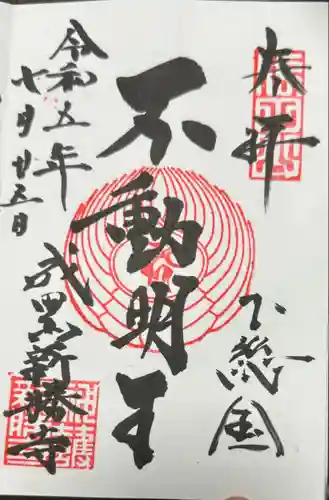 奉拝
下総国
不動明王
令和五年
十月廿五日
成田山新勝寺